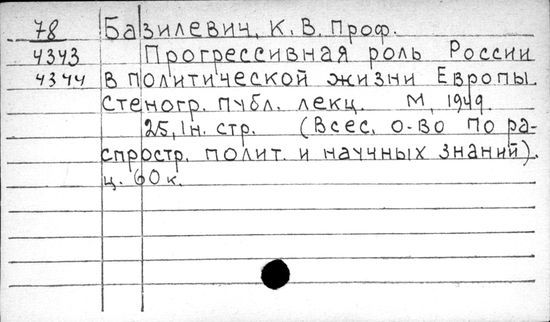 78 Базилевич, К. В. Проф.
4343 Прогрессивная роль России
4344 в политической жизни Европы.
Стеногр. публ. лекц. М, 1949.
25, 1н. стр. (Всес. о-во по ра-
спростр. полит. и научных знаний).
ц. 60 к.